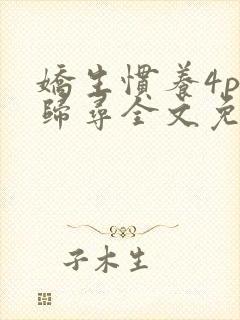 嬌生慣養4p
歸尋全文免
子木生